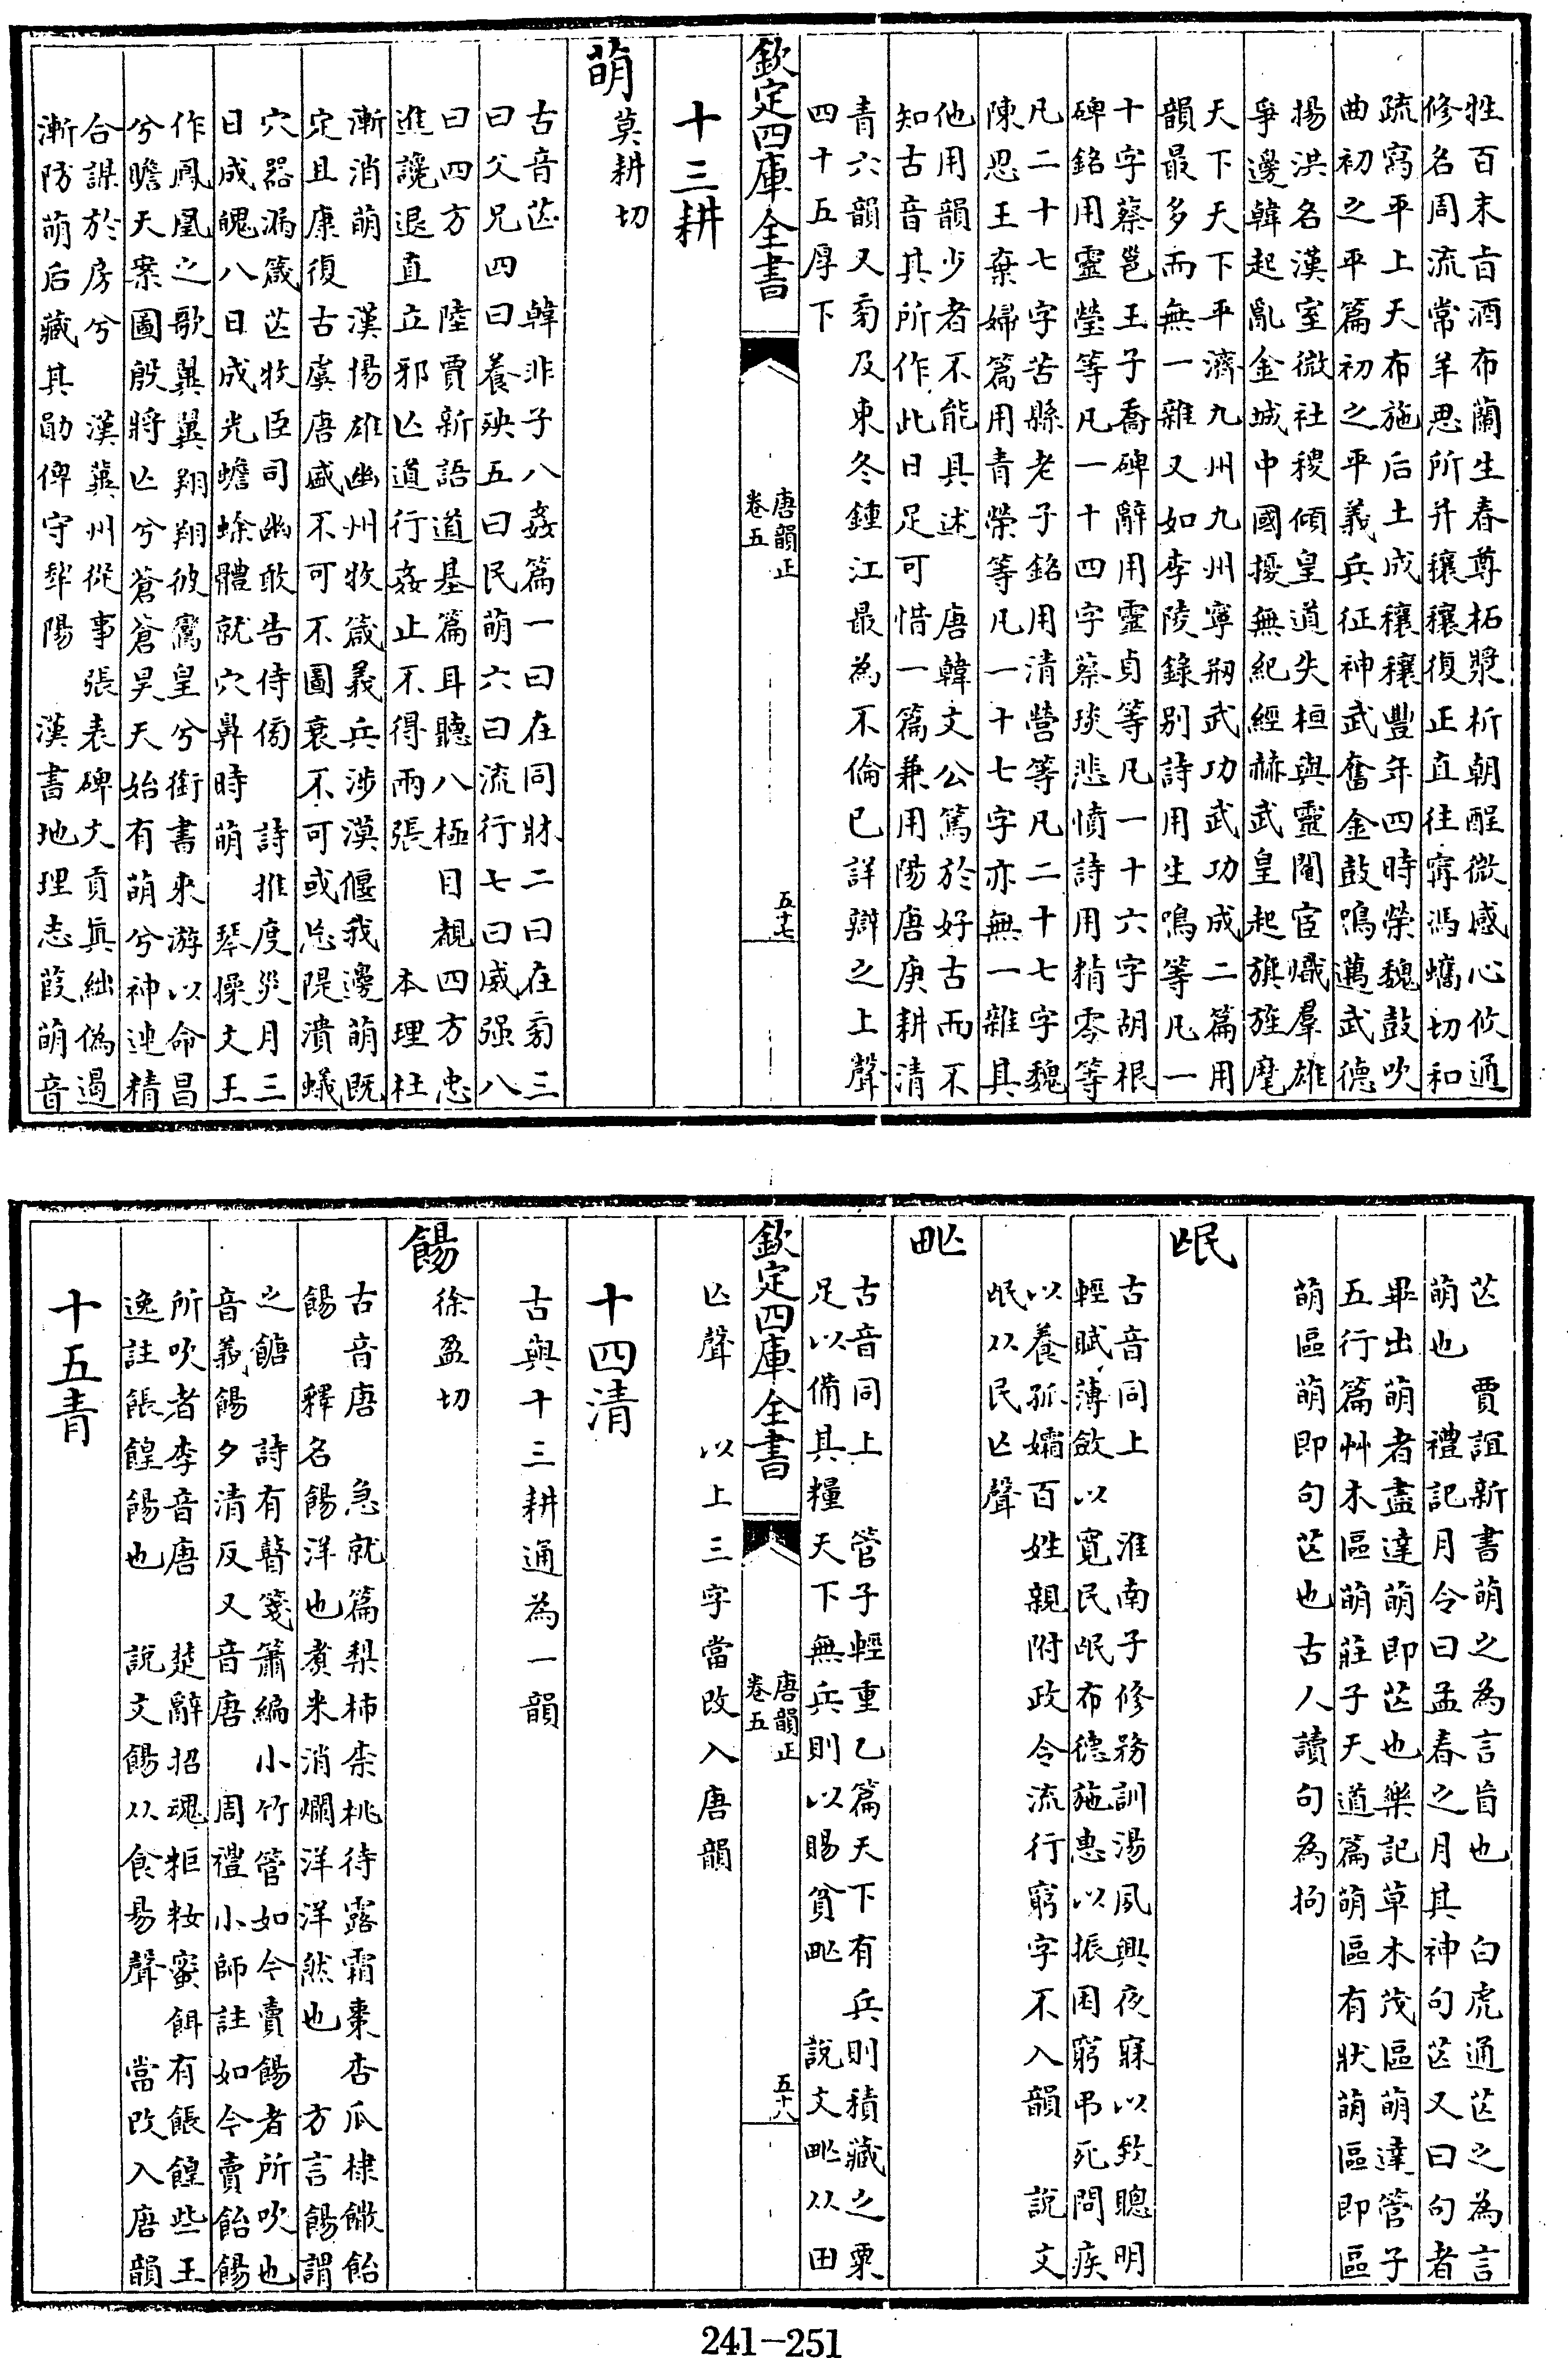 牲百末旨酒布蘭生春尊柘漿析朝酲微感心攸通
修名周流常羊思所并穰穰復正直往甯馮蠵切和
疏寫平上天布施后土成穰穰豐年四時榮魏鼓吹
曲初之平篇初之平義兵征神武奮金鼓鳴邁武德
揚洪名漢室微社稷傾皇道失桓與靈閹宦熾羣雄
爭邊韓起亂金城中國擾無紀經赫武皇起旗旌麾
天下天下平濟九州九州寧剏武功武功成二篇用
韻最多而無一雜又如李陵錄別詩用生鳴等凡一
十字蔡邕王子喬碑辭用靈貞等凡一十六字胡根
碑銘用靈瑩等凡一十四字蔡琰悲憤詩用精零等
凡二十七字苦縣老子銘用清營等凡二十七字魏
陳思王棄婦篇用青榮等凡一十七字亦無一雜具
他用韻少者不能具述　唐韓文公篤於好古而不
知古音其所作此日足可惜一篇兼用陽唐庚耕清
青六韻又旁及東冬鍾江最為不倫已詳辯之上聲
四十五厚下
欽定四庫全書
唐韻正
卷五
五十七
十三耕
萌
莫耕切
古音芒　韓非子八姦篇一曰在同牀二曰在旁三
曰父兄四曰養殃五曰民萌六曰流行七曰威强八
曰四方　陸賈新語道基篇耳聽八極目覩四方忠
進讒退直立邪亾道行姦止不得兩張　本理杜
漸消萌　漢揚雄幽州牧箴義兵涉漠偃我邊萌既
定且康復古虞唐盛不可不圖衰不可或忘隄潰蟻
穴器漏箴芒牧臣司幽敢告侍㫄　詩推度災月三
日成魄八日成光蟾蜍體就穴鼻時萌　琴操文王
作鳳凰之歌翼翼翔翔彼鸞皇兮銜書來游以命昌
兮瞻天案圖殷將亾兮蒼蒼昊天始有萌兮神連精
合謀於房兮　漢冀州從事張表碑大貢真絀偽遏
漸防萌后藏其勛俾守犂陽　漢書地理志葭萌音
芒　賈誼新書萌之為言盲也　白虎通芒之為言
萌也　禮記月令曰孟春之月其神句芒又曰句者
畢出萌者盡達萌即芒也樂記草木茂區萌達管子
五行篇艸木區萌莊子天道篇萌區有狀萌區即區
萌區萌即句芒也古人讀句為拘
㞴
古音同上　淮南子修務訓湯夙興夜寐以致聰明
輕賦薄斂以寬民氓布德施惠以振困窮弔死問疾
以養孤孀百姓親附政令流行窮字不入韻　說文
氓从民亾聲
甿
古音同上　管子輕重乙篇天下有兵則積藏之粟
足以備其糧天下無兵則以賜貧甿　說文甿从田
欽定四庫全書
唐韻正
卷五
五十八
亾聲　以上三字當改入唐韻
十四清
古與十三耕通為一韻
餳
徐盈切
古音唐　急就篇梨柿柰桃待露霜棗杏瓜棣饊飴
餳　釋名餳洋也煮米消爛洋洋然也　方言餳謂
之餹　詩有瞽箋簫編小竹管如今賣餳者所吹也
音義餳夕清反又音唐　周禮小師註如今賣飴餳
所吹者李音唐　楚辭招魂粔籹蜜餌有餦餭些王
逸註餦餭餳也　說文餳从食昜聲　當改入唐韻
十五青
241-251